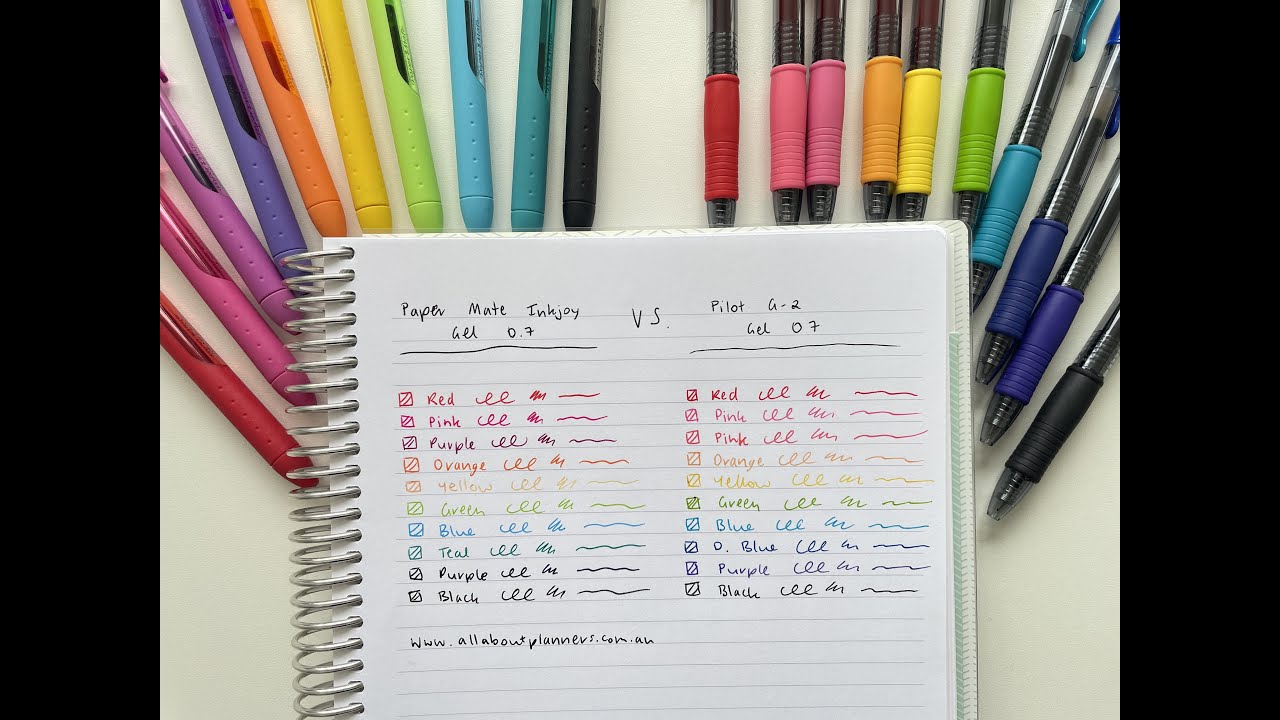 Paper Mate Inkjoy
Gel 0.7
VS.
Pilot G-2
Gel 07
Red
Pink
Purple
Orange
Yellow
Green
Blue
Teal
Purple
Black
Red
Pink
Pink
Orange
Yellow
Green
Blue
D. Blue
Purple
Black
www.allaboutplanners.com.au